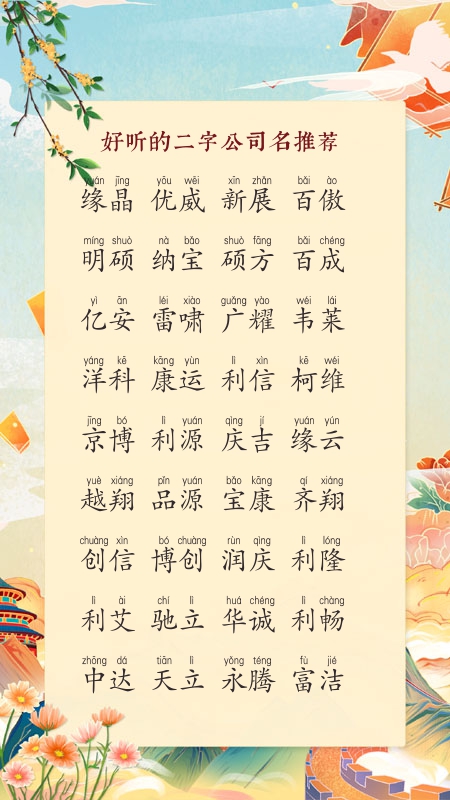 好听的二字公司名推荐
yuán jīng yōu wēi xīn zhǎn bǎi ào
缘晶 优威 新展 百傲
míng shuò nà bǎo shuò fāng bǎi chéng
明硕 纳宝 硕方 百成
yì ān léi xiào guǎng yào wéi lái
亿安 雷啸 广耀 韦莱
yáng kē kāng yùn lì xìn kē wéi
洋科 康运 利信 柯维
jīng bó lì yuán qìng jí yuán yún
京博 利源 庆吉 缘云
yuè xiáng pǐn yuán bǎo kāng qí xiáng
越翔 品源 宝康 齐翔
chuàng xìn bó chuàng rùn qìng lì lóng
创信 博创 润庆 利隆
lì ài chí lì huá chéng lì chàng
利艾 驰立 华诚 利畅
zhōng dá tiān lì yǒng téng fù jié
中达 天立 永腾 富洁